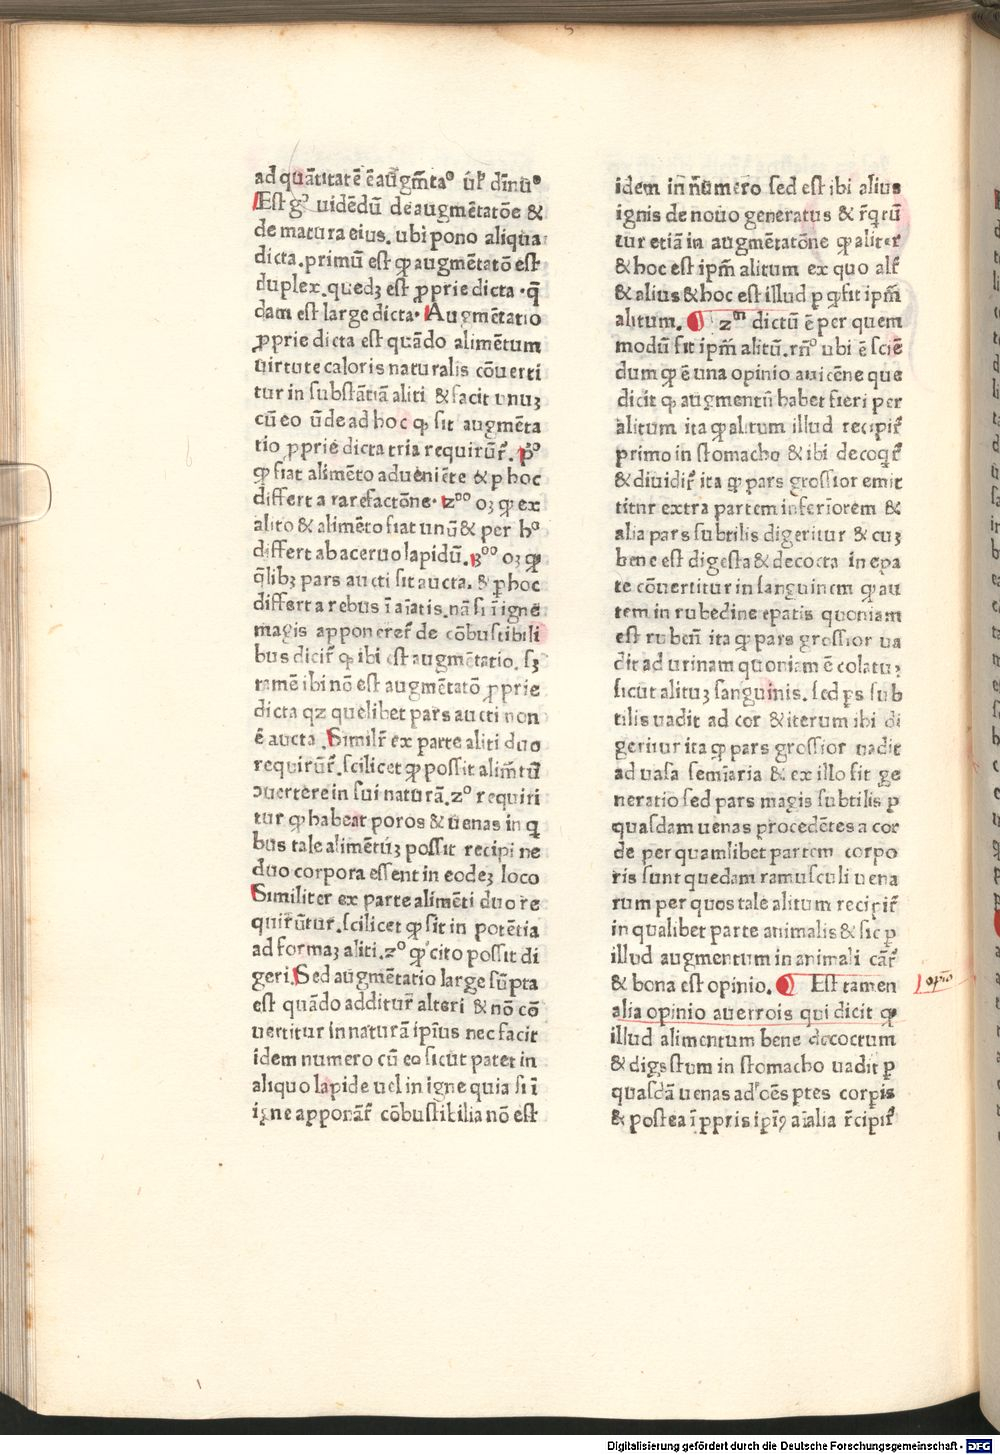 ad quātitatē ē augm̄taᵒ ul̓ dīnuᵒ
Est gᵒ uidēdū de augmētatōe &
de matura eius. ubi pono aliqua
dicta. primū est ꝙ augmētatō est
duplex. quedʒ est ꝓprie dicta. q̄
dam est large dicta. Augmētatio
ꝓprie dicta est quādo alimētum
uirtute caloris naturalis cōuerti
tur in substātiā aliti & facit unuʒ
cū eo ūde ad hoc ꝙ sit augmēta
tio ꝓprie dicta tria requirūr̄. pᵒ
ꝙ fiat alimēto adueniēte & p hoc
differt a rarefactōne. zᵒᵒ oʒ ꝙ ex
alito & alimēto fiat unū & per hᵒ
differt ab aceruo lapidū. 3ᵒᵒ oʒ ꝙ
q̄libʒ pars aucti sit aucta. & ꝓ hoc
differt a rebus ī aīatis. nā si ī igne
magis apponeret̄ de cōbustibili
bus dicir̄ ꝙ ibi est augmētatio. sʒ
tamē ibi nō est augmētatō ꝓprie
dicta qz quelibet pars aucti non
ē aucta. Similr̄ ex parte aliti duo
requirūr̄. scilicet ꝙ possit alim̄tū
ɔuertere in sui naturā. zᵒ requiri
tur ꝙ habeat poros & uenas in q̄
bus tale alimētūʒ possit recipi ne
duo corpora essent in eodeʒ loco
Similiter ex parte alimēti duo re
quirūtur. scilicet ꝙ sit in potētia
ad formaʒ aliti. zᵒ ꝙ cito possit di
geri. Sed augmētatio large sūpta
est quādo additur̄ alteri & nō cō
uertitur in naturā ipīus nec facit
idem numero cū eo sicut patet in
aliquo lapide uel in igne quia si ī
igne apponār̄ cōbustibilia nō est
idem in nūmero sed est ibi alius
ignis de nouo generatus & r̄qrū
tur etiā in augmētatōne ꝙ aliter
& hoc est ipm̄ alitum ex quo alr̄
& alius & hoc est illud p q̄ fit ipm̄
alitum. zᵐ dictū ē per quem
modū fit ipm̄ alitū. rn̄ᵒ ubi ē sciē
dum ꝙ ē una opinio auicēne que
dicit ꝙ augmentū habet fieri per
alitum ita ꝙ alitum illud recipir̄
primo in stomacho & ibi decoqr̄
& diuidir̄ ita ꝙ pars grossior emit
titur extra partem inferiorem &
alia pars subtilis digeritur & cuʒ
bene est digesta & decocta in epa
te cōuertitur in sanguinem ꝙ au
tem in rubedine epatis quoniam
est rubem̄ ita ꝙ pars grossior ua
dit ad urinam quoniam ē colatuʒ
sicut alituʒ sanguinis. sed ꝑs sub
tilis uadit ad cor & iterum ibi di
geritur ita ꝙ pars grossior uadit
ad uasa semīaria & ex illo fit ge
neratio sed pars magis subtilis ꝑ
quasdam uenas procedētes a cor
de per quamlibet partem corpo
ris sunt quedam ramusculi uena
rum per quos tale alitum recipir̄
in qualibet parte animalis & sic ꝑ
illud augmentum in animali cār̄
& bona est opinio. Est tamen
alia opinio auerrois qui dicit ꝙ
illud alimentum bene decoctum
& digestum in stomacho uadit ꝑ
quasdā uenas ad oēs ptes corꝑis
& postea ī ppris ipiꝰ aīalia r̄cipir̄
opīo
Digitalisierung gefördert durch die Deutsche Forschungsgemeinschaft - DFG